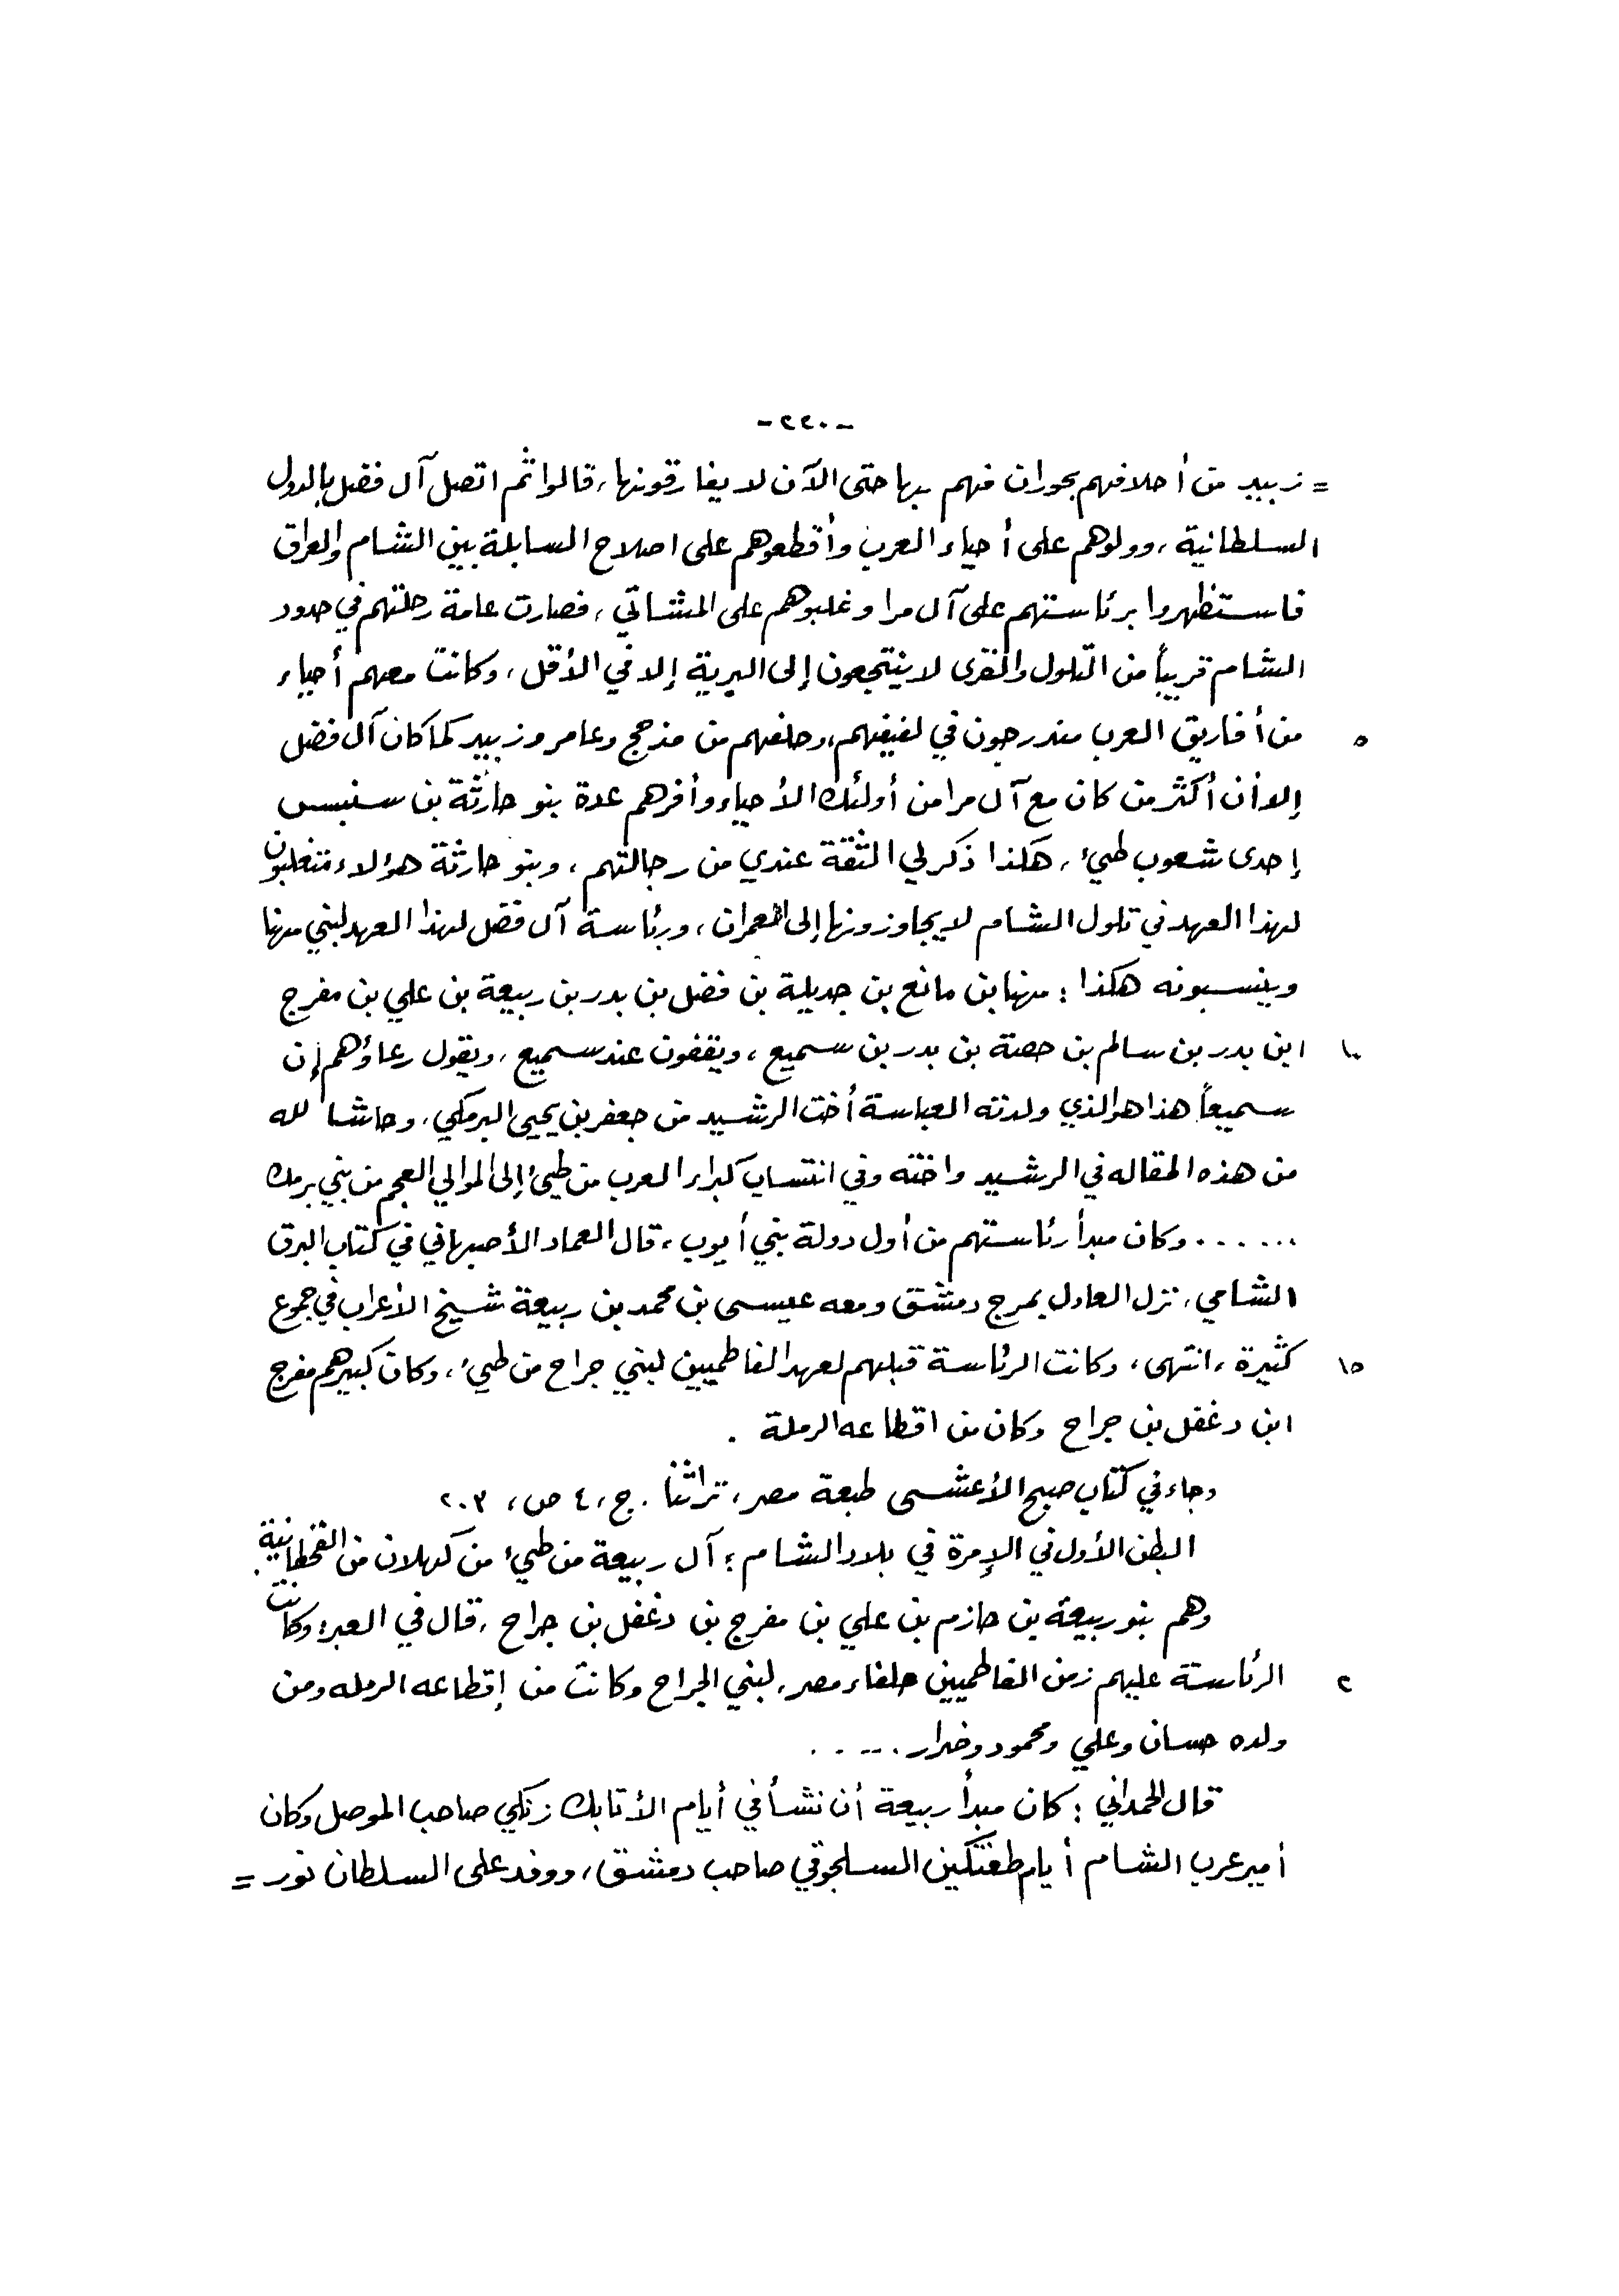 -٢٢٠-
= زبيد من أحلافهم بحوران فهم بها حتى الآن لا يفارقونها، قالوا ثم اتصل آل فضل بالدول
السلطانية، وولوهم على أحياء العرب وأقطعوهم على اصلاح السابلة بين الشام والعراق
فاستظهروا برئاستهم على آل مرا وغلبوهم على المشاتي، فصارت عامة رحلتهم في حدود
الشام قريباً من التلول والقرى لا ينتجعون إلى البرية إلا في الأقل، وكانت معهم أحياء
٥ من أفاريق العرب مندرجون في لفيفهم، وحلفهم من مذحج وعامر وزبيد كما كان آل فضل
إلا أن أكثر من كان مع آل مرا من أولئك الأحياء وأفرهم عدة بنو حارثة بن سنبس
إحدى شعوب طيء، هكذا ذكر لي الثقة عندي من رجالتهم، وبنو حارثة هؤلاء متغلبون
لهذا العهد في تلول الشام لا يجاوزونها إلى العمران، ورئاسة آل فضل لهذا العهد لبني مهنا
وينسبونه هكذا : مهنا بن مانع بن جديلة بن فضل بن بدر بن ربيعة بن علي بن مفرج
١٠ ابن بدر بن سالم بن حصة بن بدر بن سميع، ويقفون عند سميع، ويقول رعاؤهم إن
سميعاً هذا هو الذي ولدته العباسة أخت الرشيد من جعفر بن يحيى البرمكي، وحاشا لله
من هذه المقاله في الرشيد واخته وفي انتساب كبراء العرب من طيء إلى الموالي العجم من بني برمك
...... وكان مبدأ رئاستهم من أول دولة بني أيوب، قال العماد الأصبهاني في كتاب البرق
الشامي، نزل العادل بمرج دمشق ومعه عيسى بن محمد بن ربيعة شيخ الأعراب في جموع
١٥ كثيرة، انتهى، وكانت الرئاسة قبلهم لعهد الفاطميين لبني جراح من طيء، وكان كبيرهم مفرج
ابن دغفل بن جراح وكان من اقطاعه الرملة .
وجاء في كتاب صبح الأعشى طبعة مصر، تراثنا . ج، ٤ ص، ٢٠٣
البطن الأول في الإمرة في بلاد الشام : آل ربيعة من طيء من كهلان من القحطانية.
وهم بنو ربيعة بن حازم بن علي بن مفرج بن دغفل بن جراح، قال في العبر: وكانت
٢ الرئاسة عليهم زمن الفاطميين خلفاء مصر، لبني الجراح وكانت من إقطاعه الرمله ومن
ولده حسان وعلي ومحمود وضرار .....
قال الحمداني : كان مبدأ ربيعة أن نشأ في أيام الأتابك زنكي صاحب الموصل وكان
أمير عرب الشام أيام طغتكين السلجوقي صاحب دمشق، ووفد على السلطان نور =